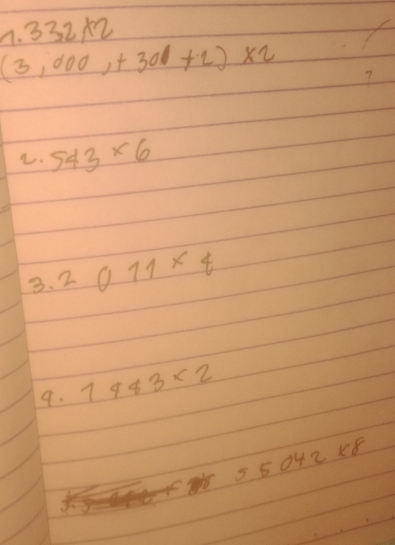 1. 332 × 2
(3,000, + 301 + 2) × 2
2. 543 × 6
3. 2 0 11 × 4
4. 1 443 × 2
5 5 042 × 8